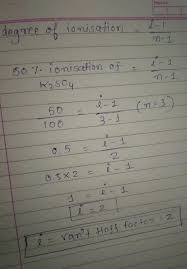 degree of ionisation = i-1/n-1
50% ionisation of K2SO4 = i-1/n-1
50/100 = i-1/3-1 (n=3)
0.5 = i-1/2
0.5×2 = i-1
1 = i-1
i=2
i = Van't Hoff factor = 2